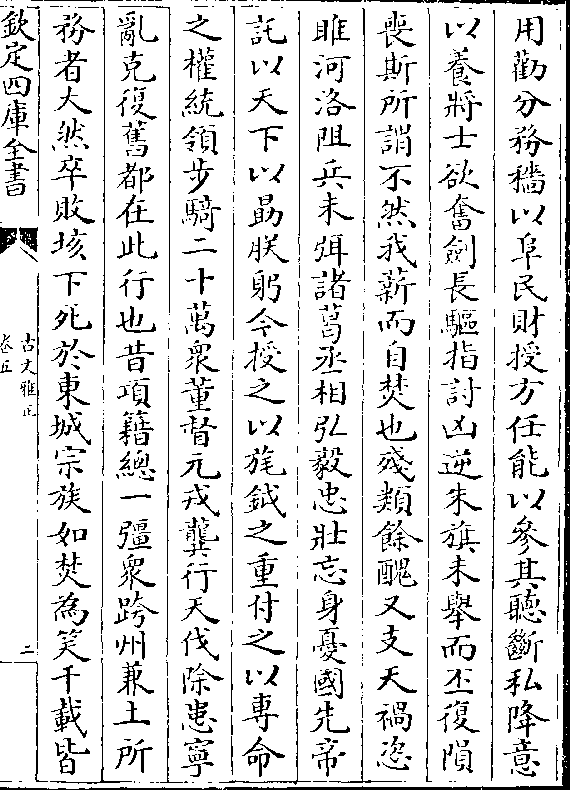 用勸分務穡以阜民財授方任能以參其聽斷私降意
以養將士欲奮劍長驅指討凶逆朱旗未舉而丕復隕
喪斯所謂不然我薪而自焚也殘類餘醜又支天禍恣
睢河洛阻兵未弭諸葛丞相弘毅忠壯忘身憂國先帝
託以天下以勗朕躬今授之以旄鉞之重付之以專命
之權統領步騎二十萬衆董督元戎龔行天伐除患寧
亂克復舊都在此行也昔項籍總一彊衆跨州兼土所
務者大然卒敗垓下死於東城宗族如焚為笑千載皆
欽定四庫全書
古文雅正
卷五
二